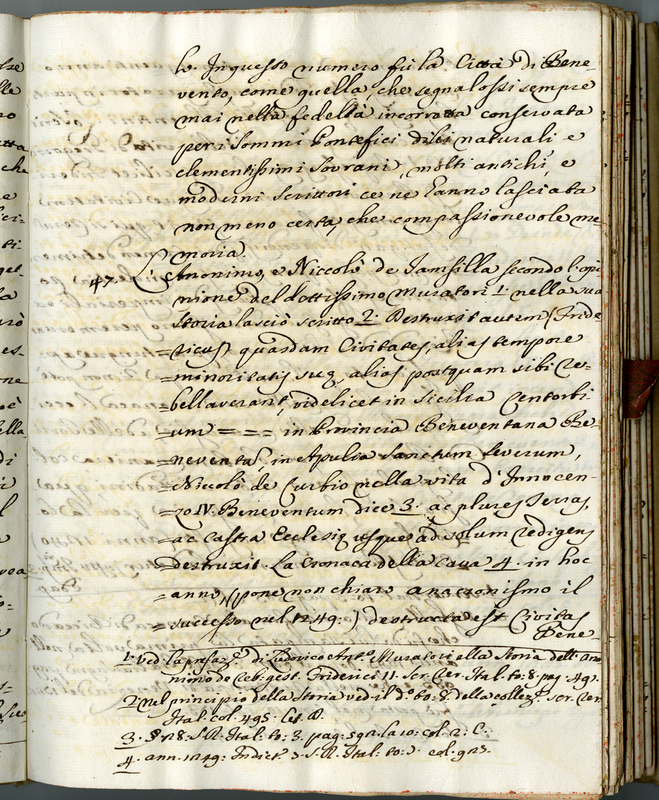 le. In questo numero fù la Città di Bene-
vento, come quella, che segnalossi sempre
mai nella fedeltà incorrotta conservata
per i Sommi Pontefici di lei naturali e
clementissimi Sovrani, molti antichi, e
moderni Scrittori ce ne hanno lasciata
non meno certa, che compassionevole me-
moria.
47. L'Anonimo, e Niccolò de Iamsilla secondo l'opi-
nione del dottissimo Muratori 1. nella sua
Storia lasciò scritto 2. Destruxit autem (Fride-
=ricus) quasdam Civitates, alias tempore
=minoritatis suę, alias postquam sibi re-
=bellaverant, videlicet in Sicilia Centorbi-
=um = = = in Provincia Beneventana Be-
=neventũ, in Apulia Sanctum Severum,
=Niccolò de Curbio nella vita d'Innocen-
=zo IV. Beneventum dice 3. ac plures Terras,
=ac Castra Ecclesię usque ad solum redigens
=destruxit. La Cronaca della Cava 4. in hoc
=anno, (pone non chiaro anacronismo il
=successo nel 1249:) destructa est Civitas
Bene
1. ved. la prefaz.e di Ludovico Ant.o Muratori alla Storia dell'Ano-
nimo de reb: gest. Friderici II. Scr. Rer. Ital. to: 8. pag. 492.
2. nel principio della Storia ved. il d.o to: 8. della collez.e Scr. Rer.
Ital. col. 495. let. D.
3. §. 28. S. R. Ital. to: 3. pag: 592. la 10: col. 2: C.
4. ann. 1249: Indict. S. R. Ital. to: col. 923.